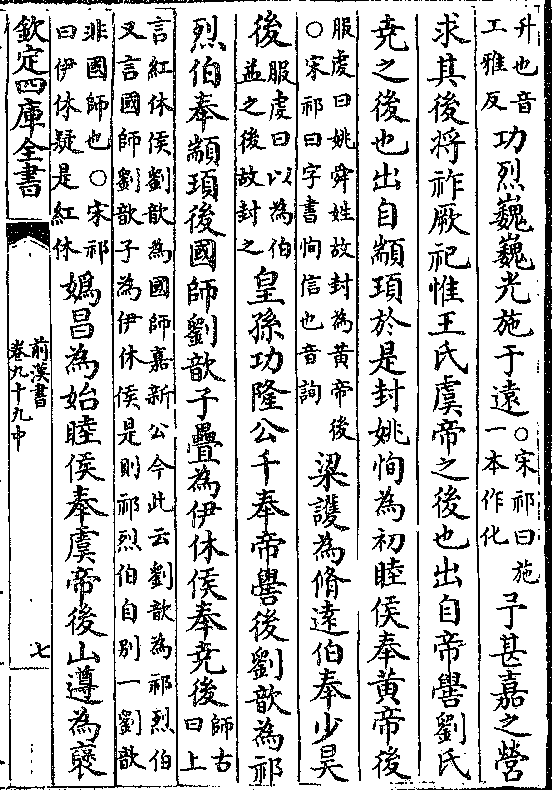 升也音
工雅反
功烈巍巍光施于遠
○宋祁曰施
一本作化
予甚嘉之營
求其後將祚厥祀惟王氏虞帝之後也出自帝嚳劉氏
堯之後也出自顓頊於是封姚恂為初睦侯奉黃帝後
服虔曰姚舜姓故封為黃帝後
○宋祁曰字書恂信也音詢
梁護為脩遠伯奉少昊
後
服虔曰以為伯
益之後故封之
皇孫功隆公千奉帝嚳後劉歆為祁
烈伯奉顓頊後國師劉歆子疊為伊休侯奉堯後
師古
曰上
言紅休侯劉歆為國師嘉新公今此云劉歆為祁烈伯
又言國師劉歆子為伊休侯是則祁烈伯自別一劉歆
非國師也○宋祁
曰伊休疑是紅休
媯昌為始睦侯奉虞帝後山遵為褒
欽定四庫全書
前漢書
卷九十九中
七